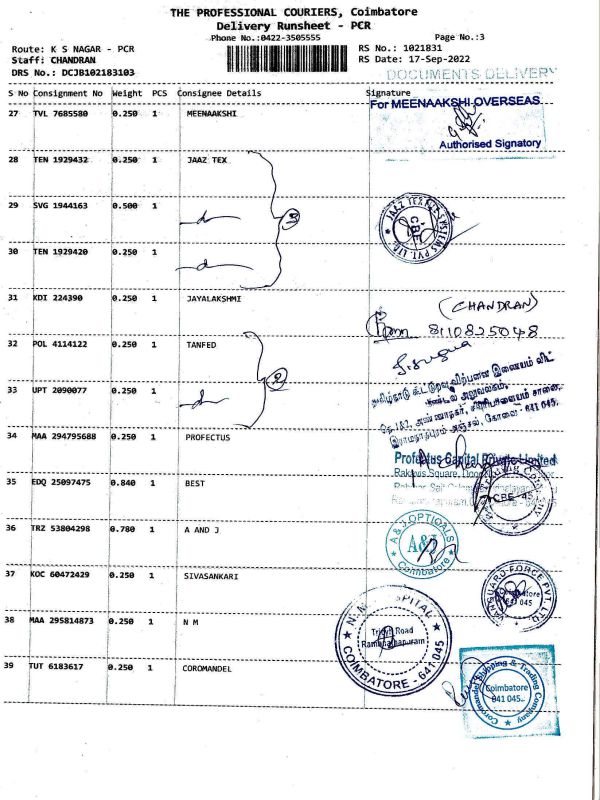 THE PROFESSIONAL COURIERS, Coimbatore
Delivery Runsheet - PCR
Phone No.:0422-3505555
Page No.:3
Route: K S NAGAR - PCR
RS No.: 1021831
Staff: CHANDRAN
RS Date: 17-Sep-2022
DRS No.: DCJB102183103
DOCUMENTS DELIVERY
S No Consignment No Weight PCS Consignee Details Signature
27 TVL 7685580 0.250 1 MEENAAKSHI
For MEENAAKSHI OVERSEAS
Authorised Signatory
28 TEN 1929432 0.250 1 JAAZ TEX
29 SVG 1944163 0.500 1
CBE
30 TEN 1929420 0.250 1
31 KDI 224390 0.250 1 JAYALAKSHMI
(CHANDRAN)
8110825048
32 POL 4114122 0.250 1 TANFED
தமிழ்நாடு கூட்டுறவு விற்பனை இணையம் லிட்
மண்டல அலுவலகம்,
33 UPT 2090077 0.250 1
இராமநாதபுரம் அஞ்சல், கோவை - 641 045.
34 MAA 294795688 0.250 1 PROFECTUS
Profectus Capital Private Limited
35 EDQ 25097475 0.840 1 BEST
36 TRZ 53804298 0.780 1 A AND J
A & J OPTICALS
A&J
Coimbatore
37 KOC 60472429 0.250 1 SIVASANKARI
VANGUARD FORCE PVT. LTD.
Coimbatore
641 045
38 MAA 295814873 0.250 1 N M
Trichy Road
Ramanathapuram
COIMBATORE - 641 045
39 TUT 6183617 0.250 1 COROMANDEL
Coromandel Shipping & Trading Company
Coimbatore
641 045.